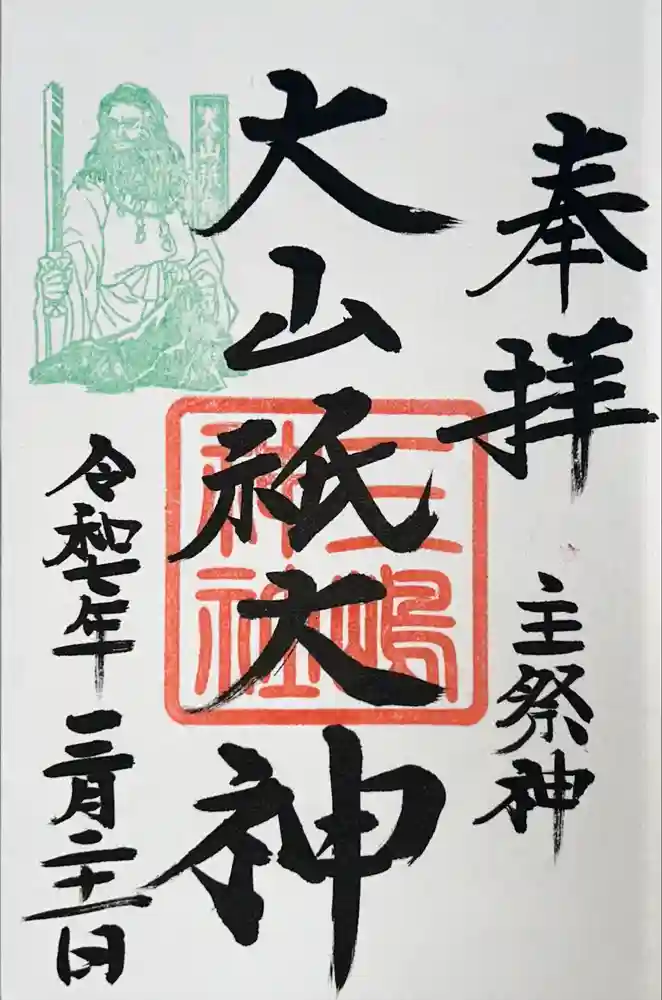 奉拝
主祭神
大山祇大神
三嶋
神社
大山祇
令和七年
三月二十一日